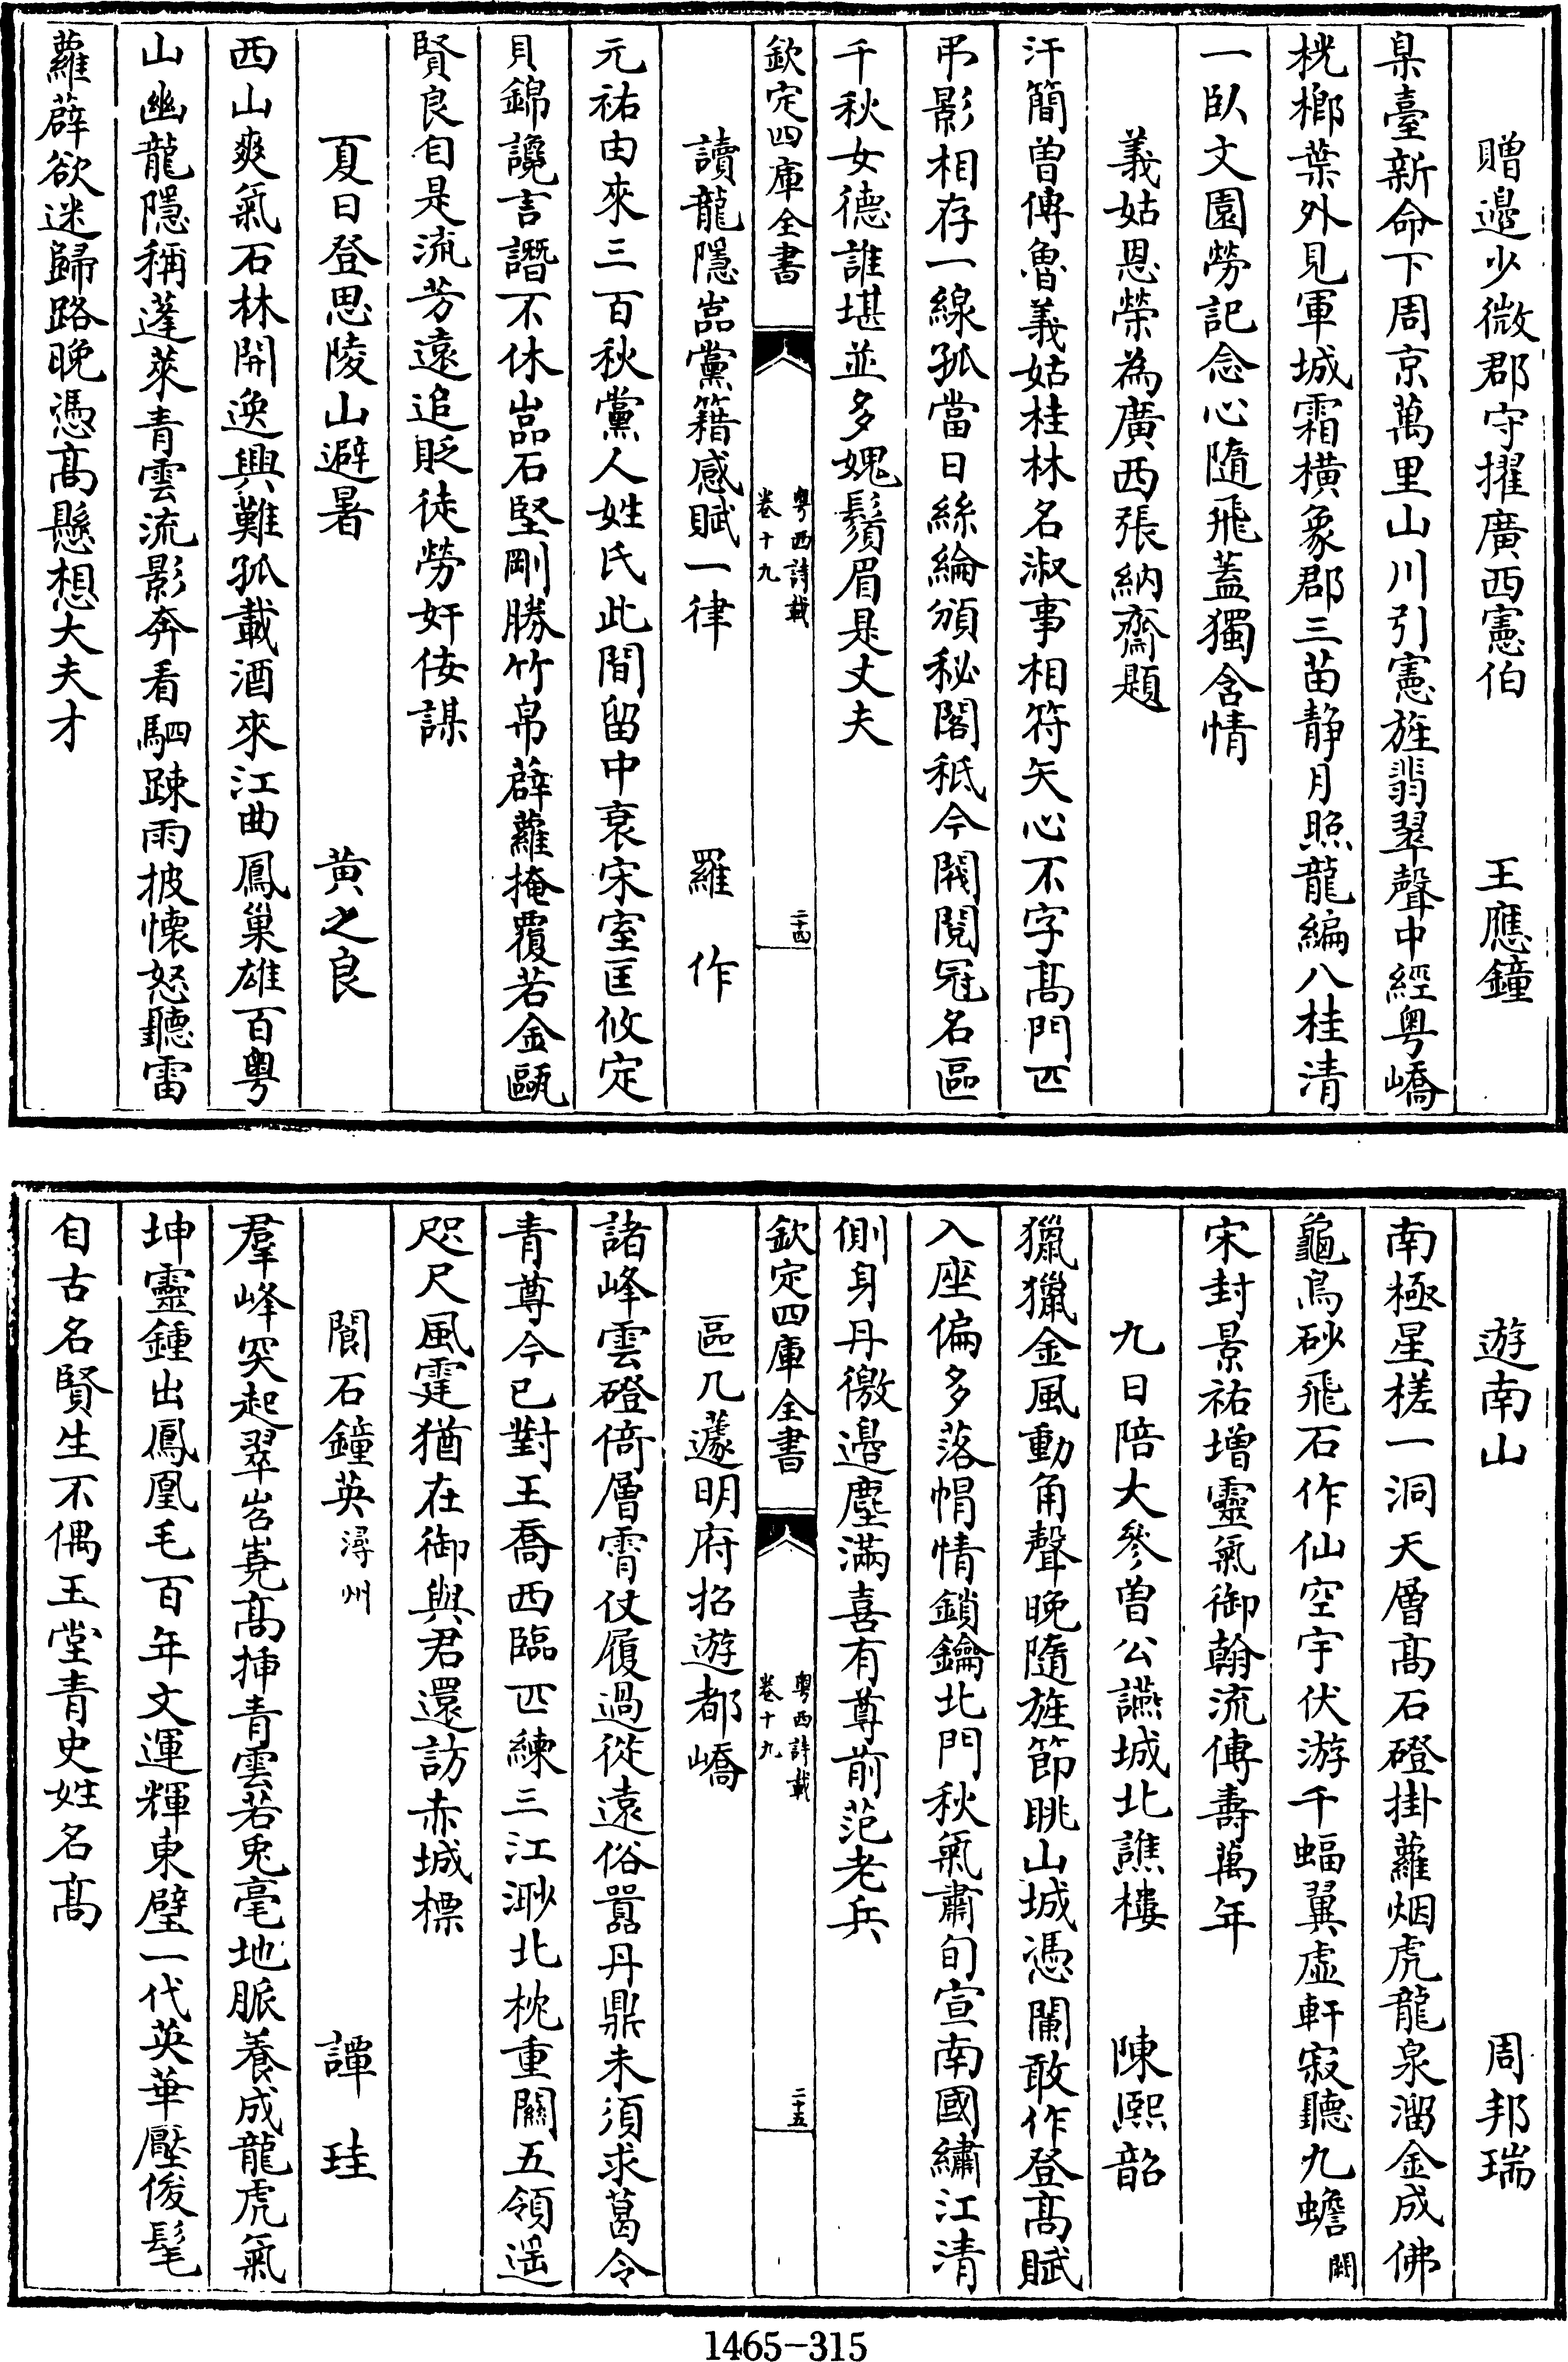 贈邉少微郡守擢廣西憲伯 王應鐘
臬臺新命下周京萬里山川引憲旌翡翠聲中經粤嶠
桄榔葉外見軍城霜横象郡三苗静月照龍編八桂清
一臥文園勞記念心隨飛蓋獨含情
義姑恩榮為廣西張納齋題
汗簡曾傳魯義姑桂林名淑事相符矢心不字髙門匹
弔影相存一線孤當日絲綸頒秘閣秪今閥閲冠名區
千秋女德誰堪並多媿鬚眉是丈夫
欽定四庫全書 粤西詩載 卷十九 二十四
讀龍隱嵓黨籍感賦一律 羅作
元祐由來三百秋黨人姓氏此間留中衰宋室匡攸定
貝錦讒言譖不休嵓石堅剛勝竹帛薜蘿掩覆若金甌
賢良自是流芳遠追貶徒勞奸佞謀
夏日登思陵山避暑 黄之良
西山爽氣石林開逸興難孤載酒來江曲鳳巢雄百粤
山幽龍隱稱蓬萊青雲流影奔看駟踈雨披懐怒聽雷
蘿薜欲迷歸路晚憑髙懸想大夫才
遊南山 周邦瑞
南極星槎一洞天層髙石磴掛蘿烟虎龍泉溜金成佛
龜鳥砂飛石作仙空宇伏游千蝠翼虚軒寂聽九蟾闕
宋封景祐增靈氣御翰流傳壽萬年
九日陪大參曾公讌城北譙樓 陳熈韶
獵獵金風動角聲晚隨旌節眺山城憑闌敢作登髙賦
入座偏多落帽情鎖鑰北門秋氣肅旬宣南國繡江清
側身丹徼邉塵滿喜有尊前范老兵
欽定四庫全書 粤西詩載 卷十九 二十五
區几蘧明府招遊都嶠
諸峰雲磴倚層霄仗履過從遠俗囂丹鼎未須求葛令
青尊今已對王喬西臨匹練三江渺北枕重關五領遥
咫尺風霆猶在御與君還訪赤城標
閬石鐘英潯州 譚珪
羣峰突起翠岧嶤髙挿青雲若兎毫地脈養成龍虎氣
坤靈鍾出鳳凰毛百年文運輝東壁一代英華壓俊髦
自古名賢生不偶玉堂青史姓名髙
1465-315